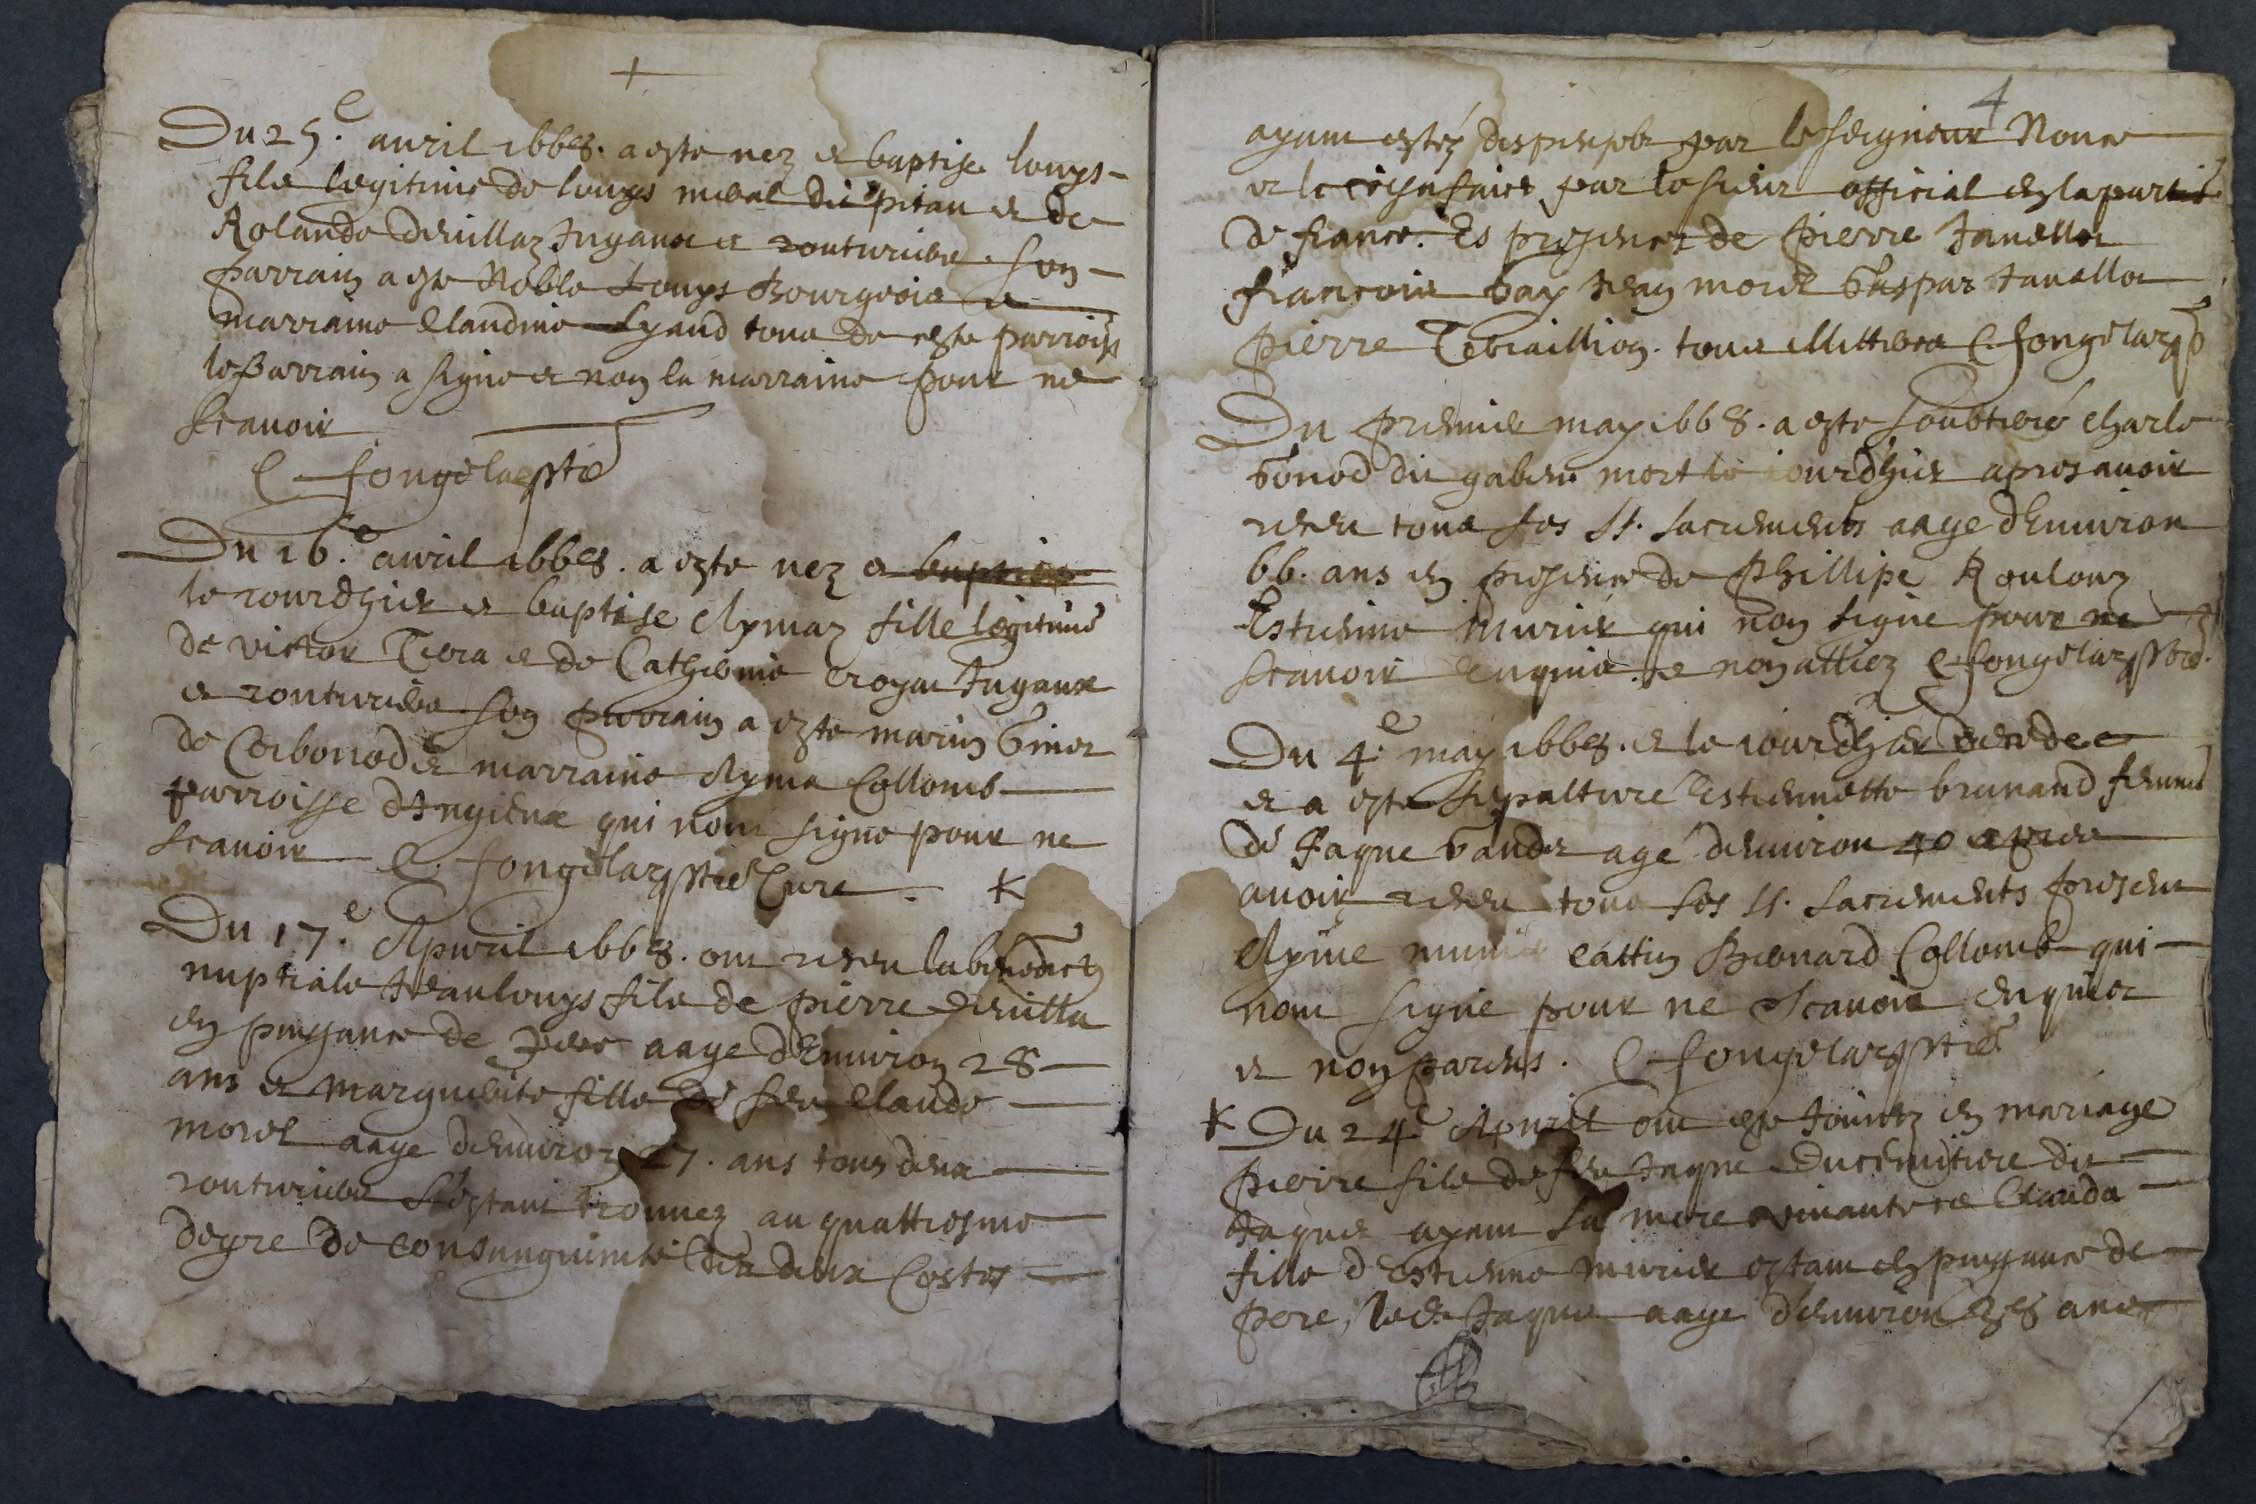 +
Du 25.e auril 1668. a este nez et baptise louys
fils legitime de louys meral dit pitau et de
Rolande deuillaz Jugaux et routuriers. son
parrain a este Noble Louys Bourgeois et
marraine Claudine Lyaud tous de ceste parroisse
le parrain a signé et non la marraine pour ne
scauoir
C fongelas ptre
Du 16.e auril 1668. a este nez et baptise
le iourdhier et baptise Aymaz fille legitime
de victor Tiera et de Catherine croyat Jugaux
et routuriers son parrain a este marin Ginet
de Cerbonod et marraine Ayma Collomb
parroisse dAngieux qui nont signe pour ne
scauoir C. fongelaz ptre Cure. *
Du 17.e Apuril 1668. ont receu la benedict
nuptiale Jean louys fils de pierre deuilla
en puyssance de pere aage dEnuiron 28
ans et marguerite fille de feu Claude
morel aage denuiron 27. ans tous deux
routuriers s'estant trouuez au quattriesme
degre de consanguinite des deux Costes
4
ayant estéz dispensés par le seigneur Nonce
et le faict par le sieur official en la partie
de france. Es presences de pierre Jauellot
francois Gay Jean morel Gaspar Jauellot
pierre Tebaillion. tous illitteres C. fongelaz p
Du premier may 1668. a este soubterré Charle
Gonod dit gabin mort le iourdhier apres auoir
receu tous ses St. sacrements aage dEnuiron
66. ans en presence de Phillipe Roulouz
Estienne murier qui non signe pour ne
scauoir enquis et non alliez C fongelaz ptre.
Du 4.e may 1668. et le iourdhier decedee
et a este sepalturé Estiennette brunand femme
de Jaque Gaudet agé denuiron 40 apres
auoir receu tous ses St. sacrements present
Ayme cattin Bernard Collomb qui
nont signe pour ne scauoir enquier
et non parens. C fongelaz ptre
* Du 24e Apuril ont este Joints en mariage
pierre fils de feu Jaque Ducimitiere dit
Jaques ayant sa mere viuante et Clauda
fille d Estienne murier estant en puyssance de
pere, ledt Jaque aage denuiron 38 ans